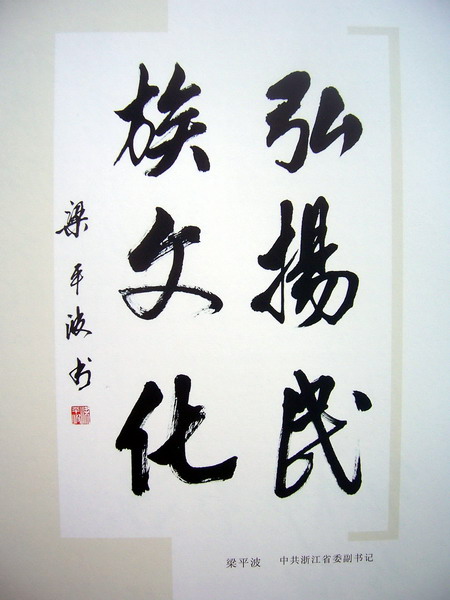 弘揚民
族文化
梁平波书
梁平波 中共浙江省委副书记